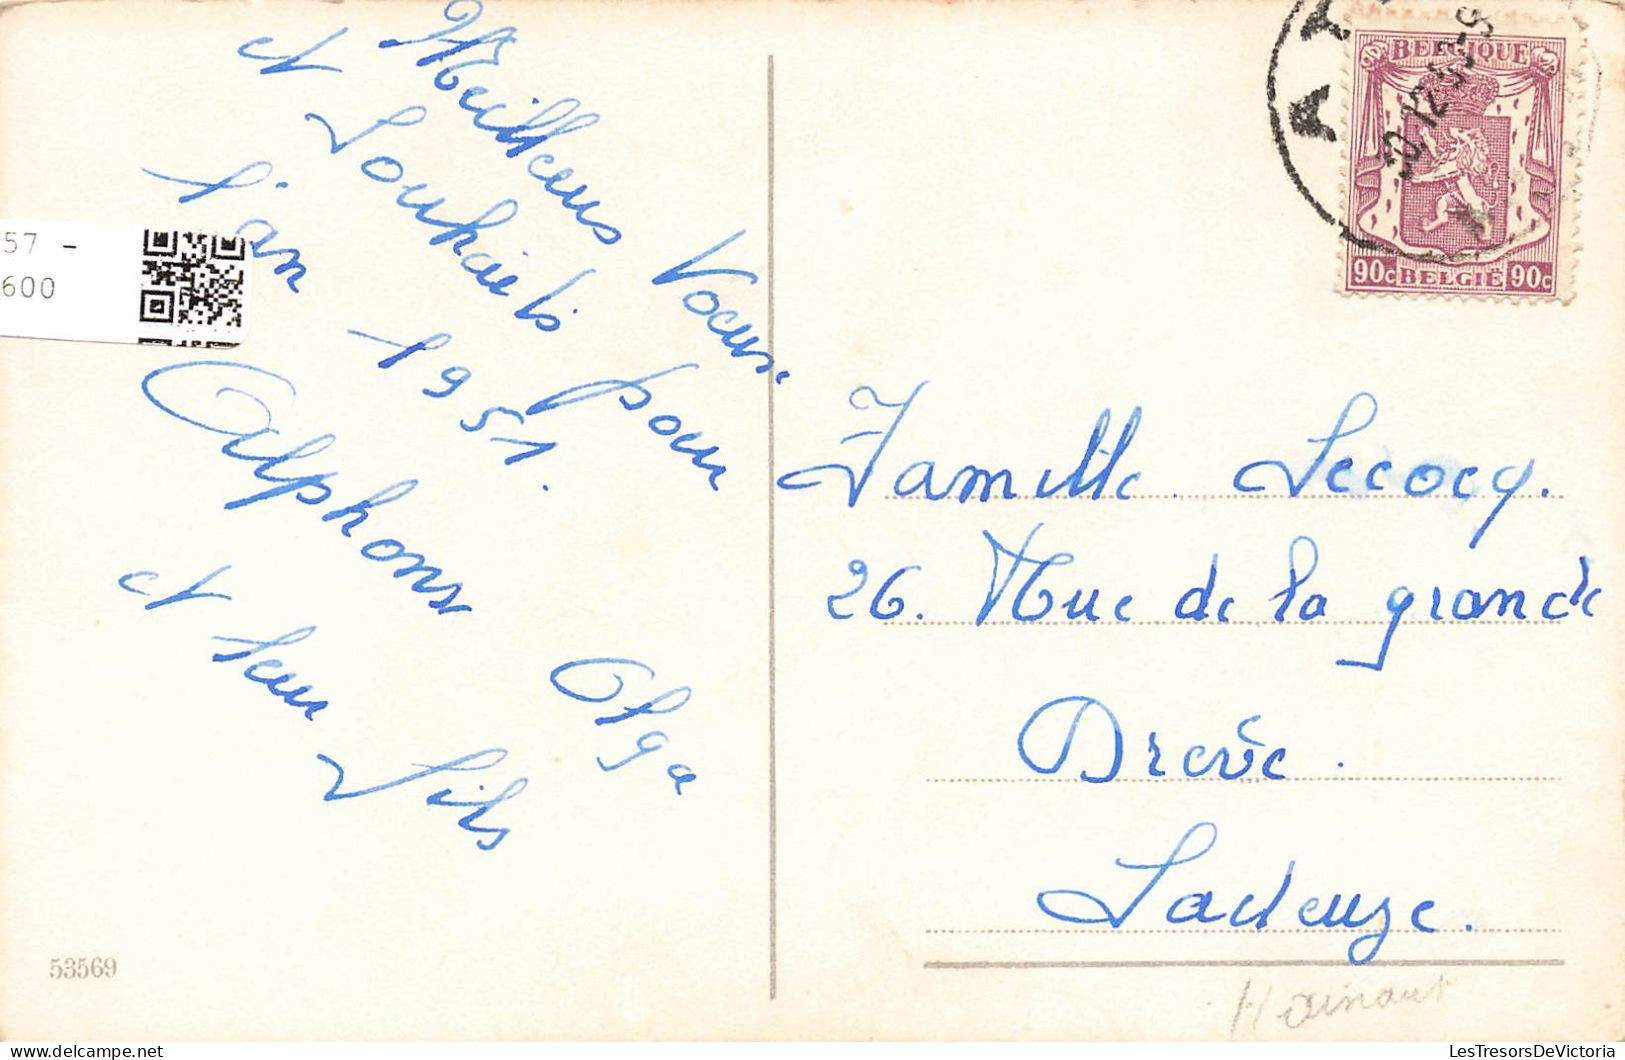 Meilleurs Voeux
et Souhaits pour
l'an 1951.
Alphonse Olga
et leur fils
57 -
600
53569
AT
30.12.50-9
BELGIQUE
90c BELGIE 90c
Famille Lecocq.
26. Rue de la grande
Drève.
Ladeuze.
Hainaut
LesTresorsDeVictoria